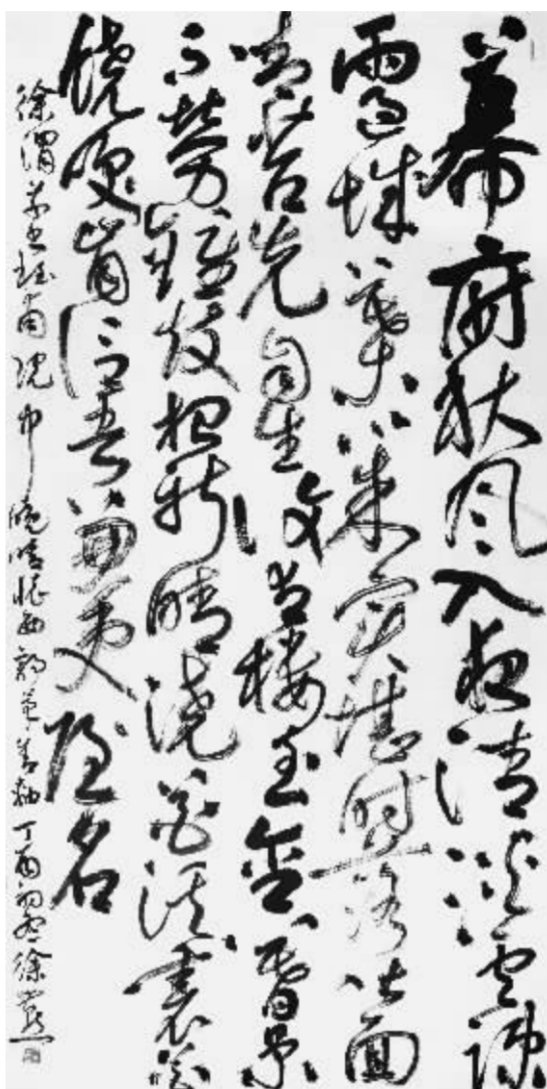 幕府秋風入夜清淡雲疎
雨過城葉心朱實堪時落階面
青苔先自生復有樓臺含暮景
不勞鐘鼓報新晴浣花溪裏花
饒笑肯信吾兼吏隱名
徐渭草書杜甫院中晚晴懷西郭茅舍軸 丁酉初冬徐